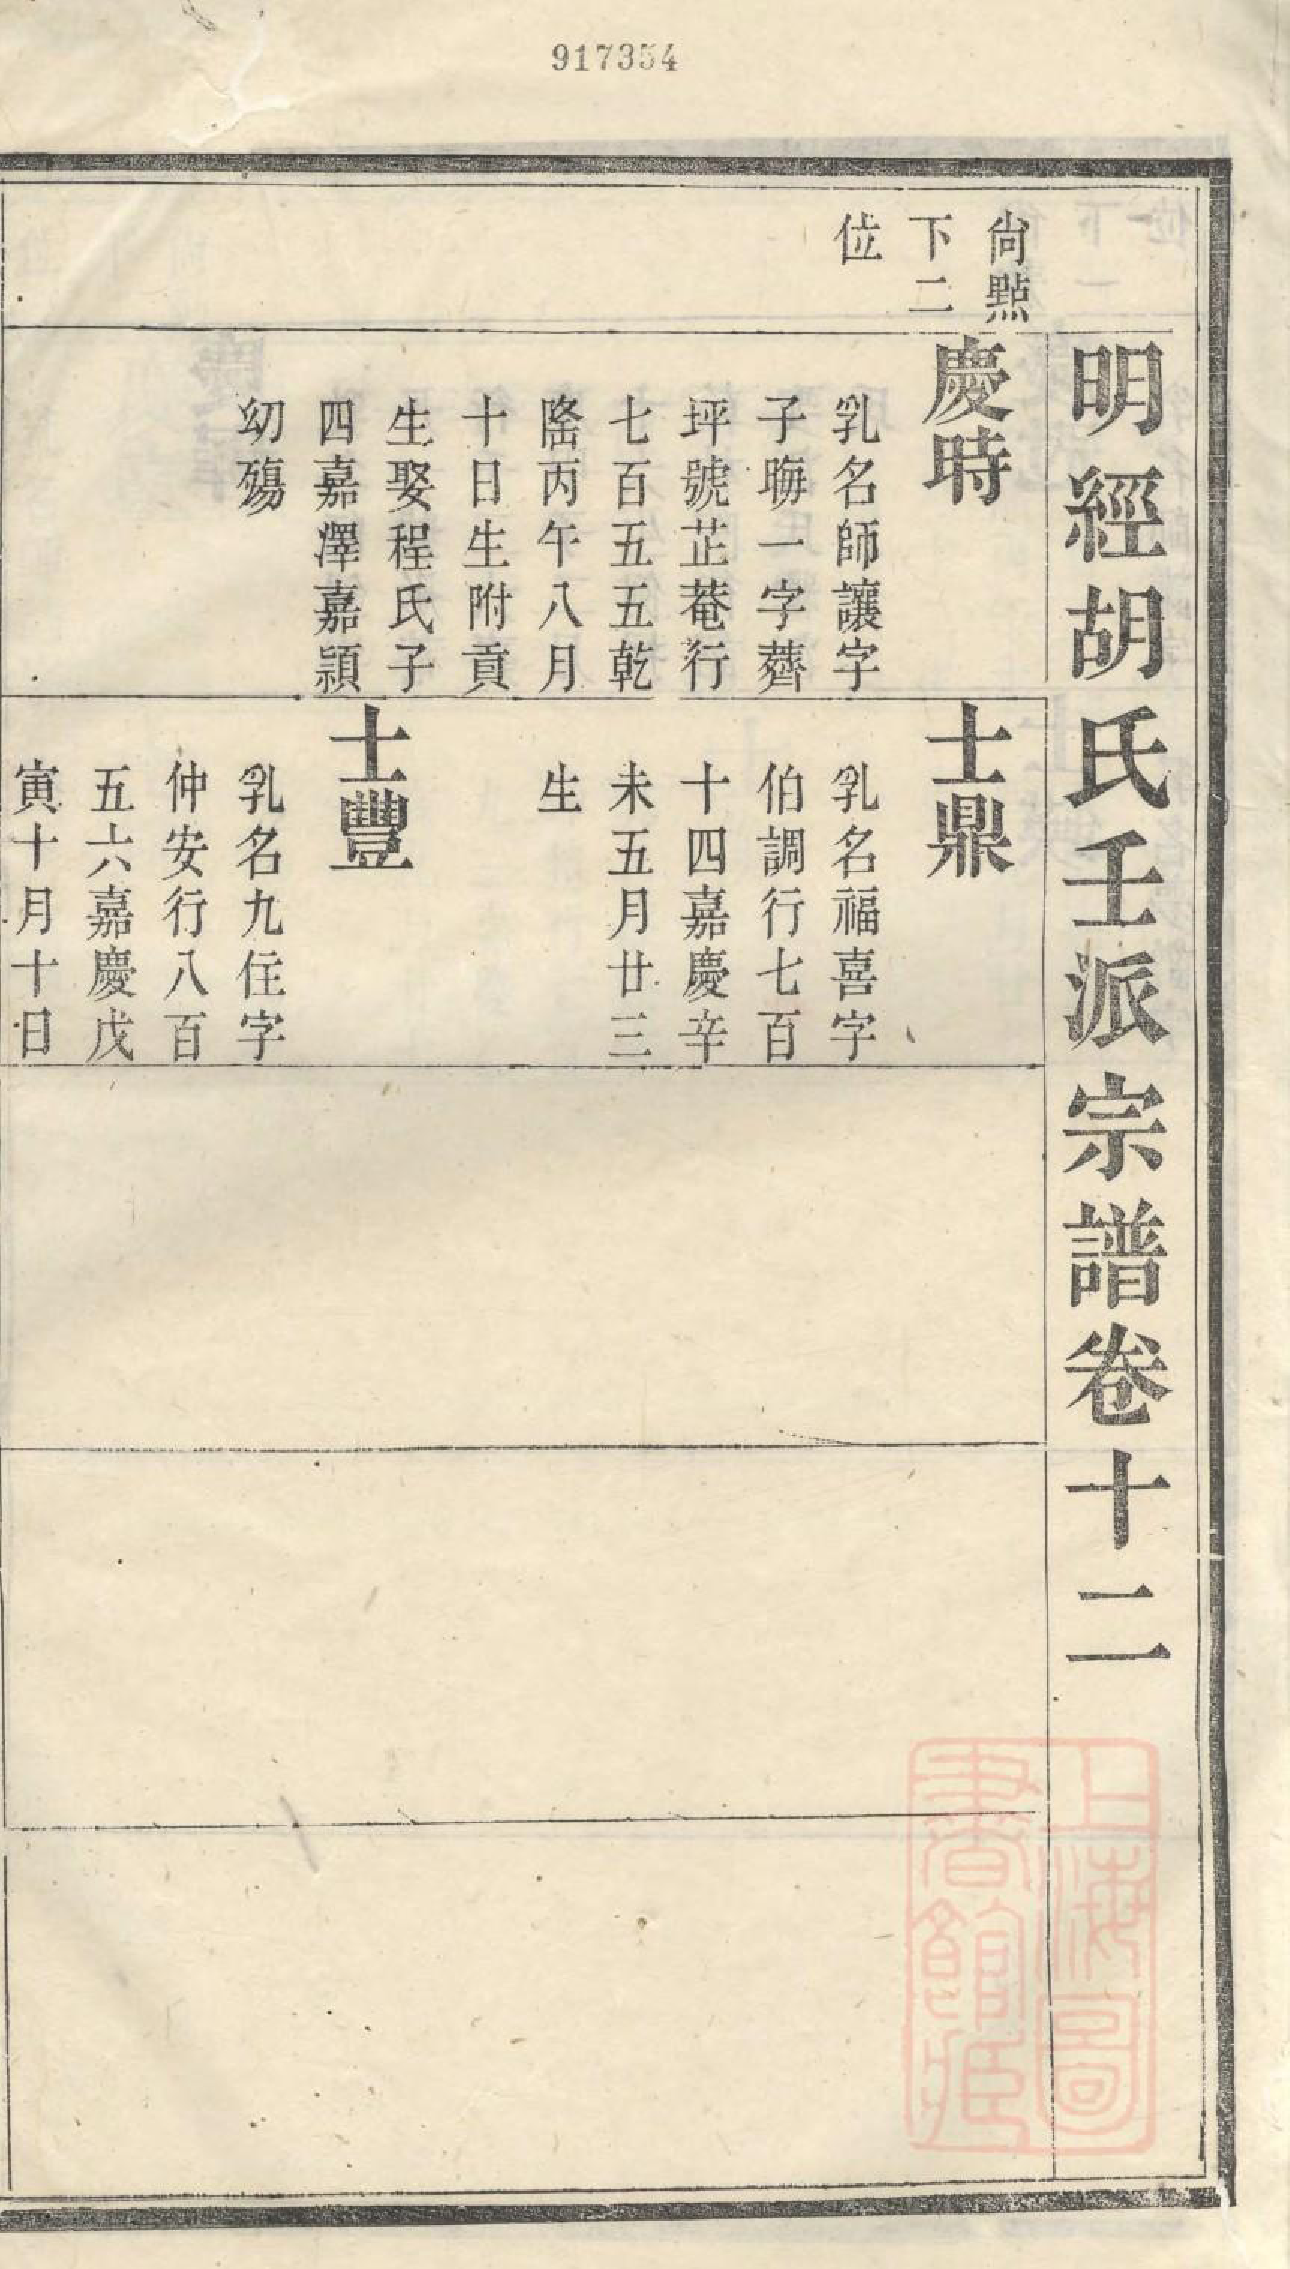 917354
明經胡氏壬派宗譜卷十二
尙㸃
下二
位
慶時
乳名師讓字
子晦一字薺
坪號芷菴行
七百五五乾
隆丙午八月
十日生附貢
生娶程氏子
四嘉澤嘉頴
幼殤
士鼎
乳名福喜字
伯調行七百
十四嘉慶辛
未五月廿三
生
士豐
乳名九住字
仲安行八百
五六嘉慶戊
寅十月十日
上海圖
書館藏